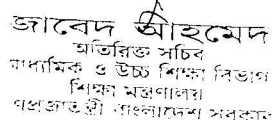 জাবেদ আহমেদ
অতিরিক্ত সচিব
মাধ্যমিক ও উচ্চ শিক্ষা বিভাগ
শিক্ষা মন্ত্রণালয়
গণপ্রজাতন্ত্রী বাংলাদেশ সরকার